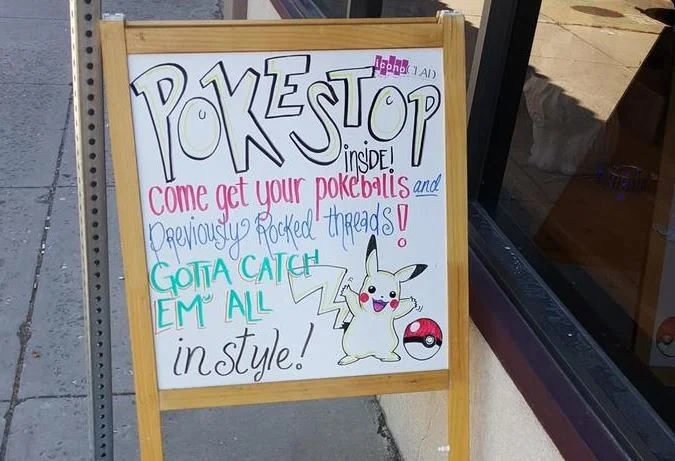 iconoCLAD
POKESTOP
inSiDE!
come get your pokeballs and
Previously Rocked threads!
GOTTA CATCH
EM' ALL
in style!